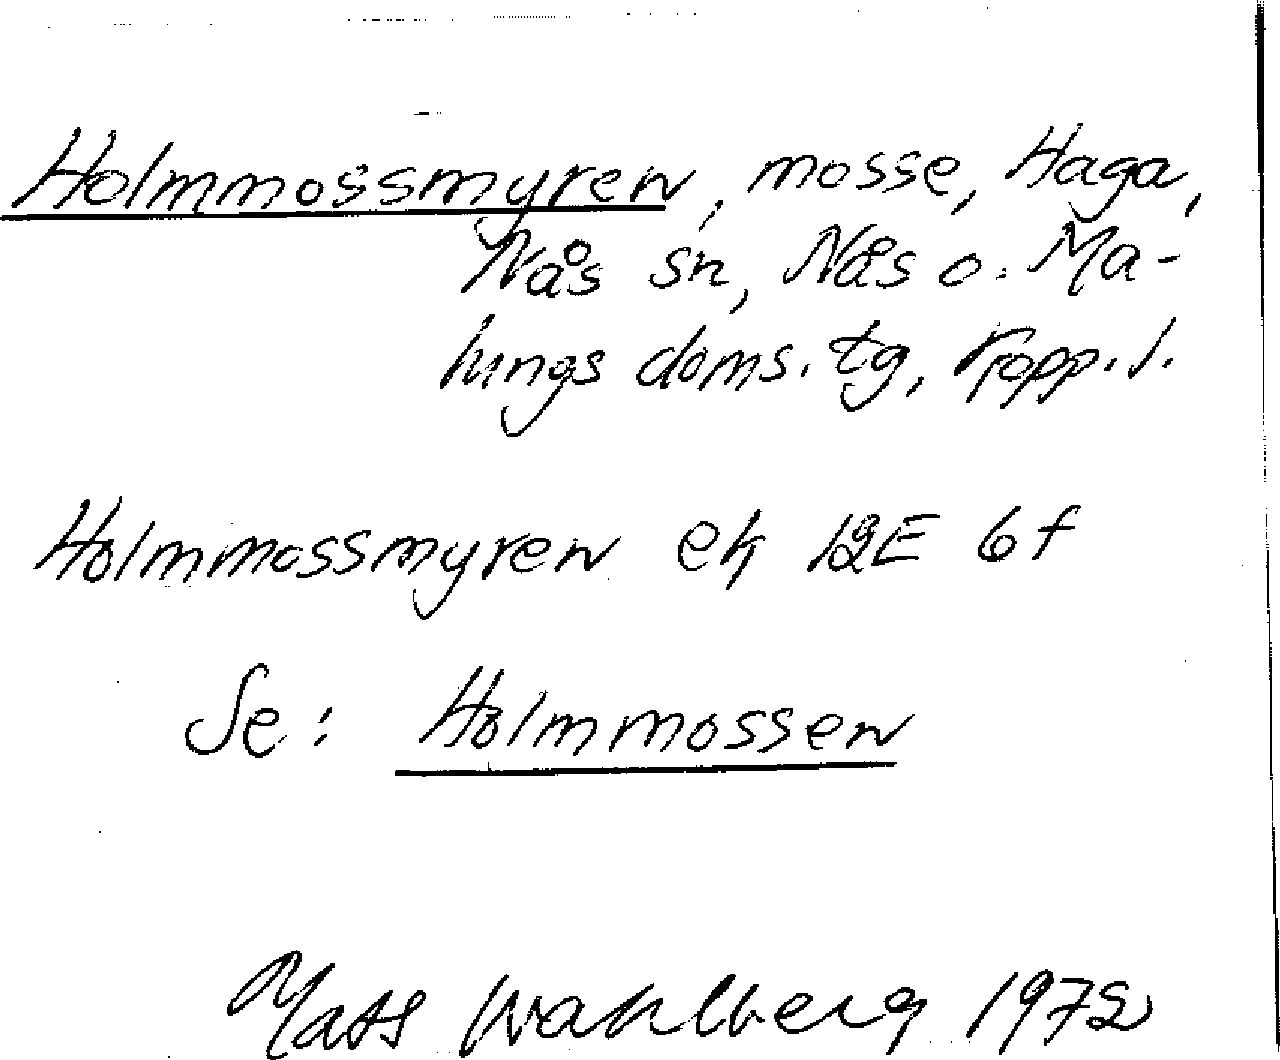 Holmmossmyren, mosse, Haga,
Nås sn, Nås o. Ma-
lungs doms. tg, Kopp. l.
Holmmossmyren ek 12E 6f
Se: Holmmossen
Mats Wahlberg 1972